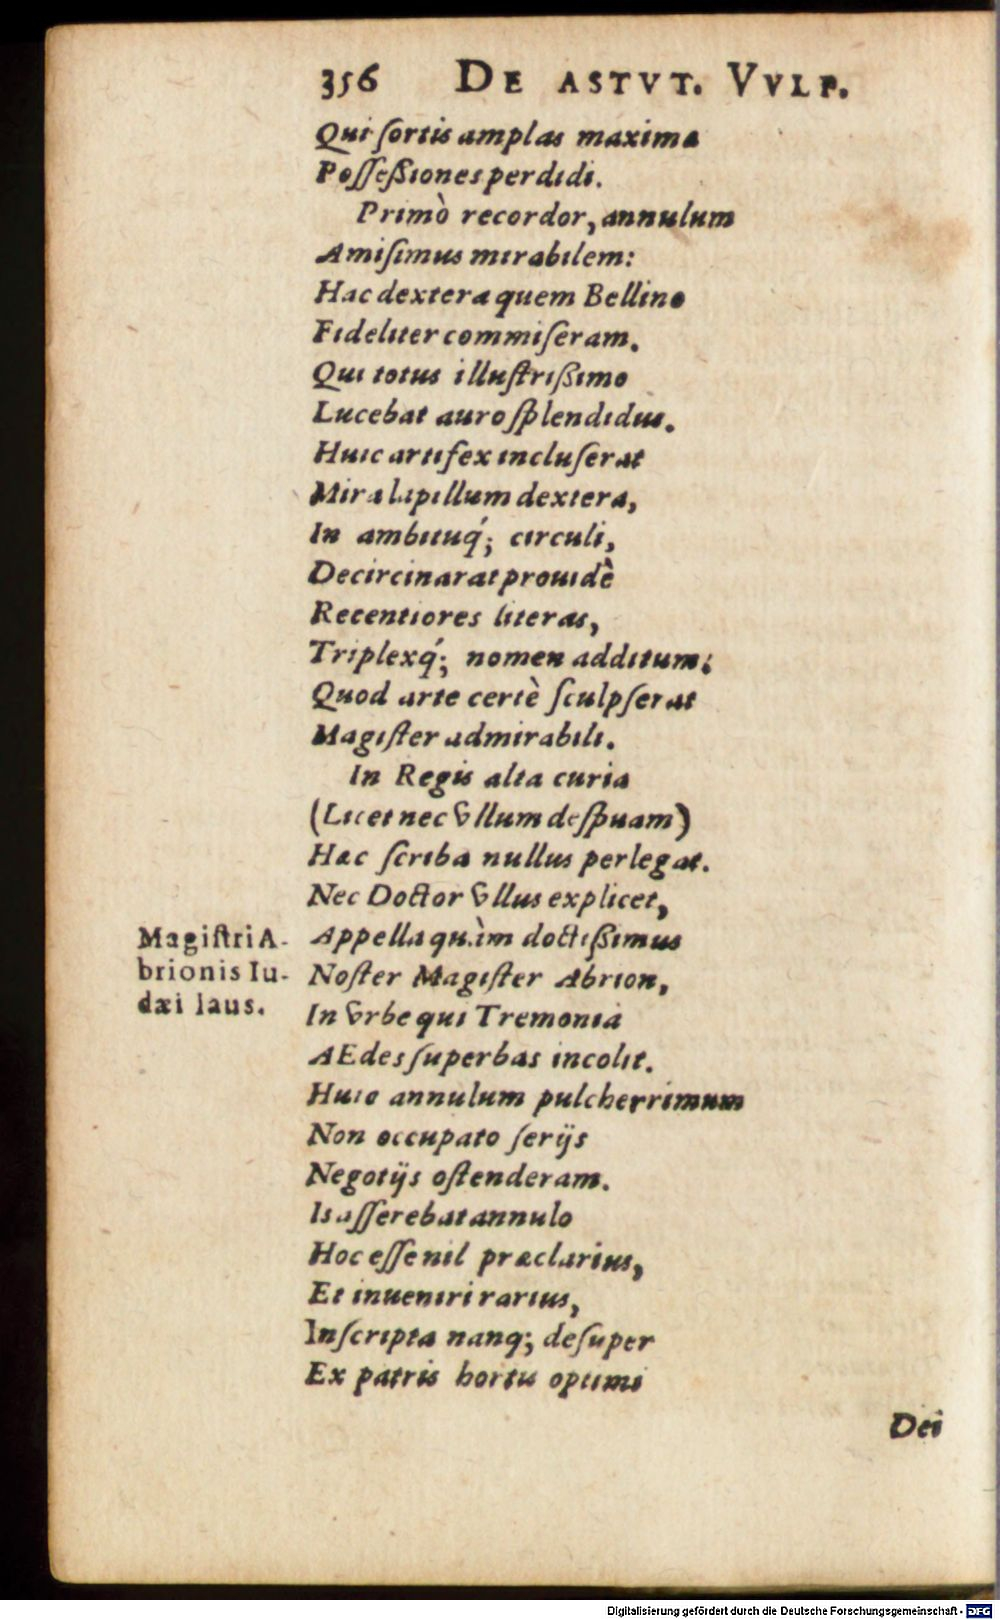 356 DE ASTVT. VVLP.
Qui ſortis amplas maxima
Poſſeßiones perdidi.
Primò recordor, annulum
Amiſimus mirabilem:
Hac dextera quem Bellino
Fideliter commiſeram.
Qui totus illuſtrißimo
Lucebat auro ſplendidus.
Huic artifex incluſerat
Mira lapillum dextera,
In ambituq́; circuli,
Decircinarat prouidè
Recentiores literas,
Triplexq́; nomen additum:
Quod arte certè ſculpſerat
Magiſter admirabili.
In Regis alta curia
(Licet nec vllum deſpuam)
Hac ſcriba nullus perlegat.
Nec Doctor vllus explicet,
Appella quàm doctißimus
Noſter Magiſter Abrion,
In vrbe qui Tremonia
AEdes ſuperbas incolit.
Huic annulum pulcherrimum
Non occupato ſerijs
Negotijs oſtenderam.
Is aſſerebat annulo
Hoc eſſe nil præclarius,
Et inueniri rarius,
Inſcripta nanq; deſuper
Ex patris hortu optimi
Dei
Magiſtri A-
brionis Iu-
dæi laus.
Digitalisierung gefördert durch die Deutsche Forschungsgemeinschaft - DFG